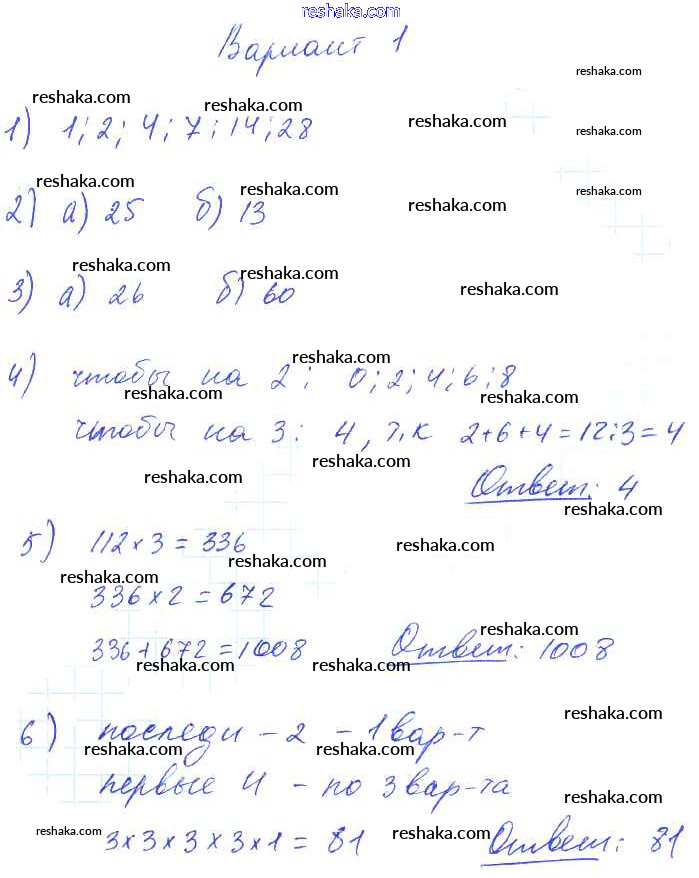 reshaka.com
Вариант 1
reshaka.com
reshaka.com reshaka.com reshaka.com
reshaka.com
1) 1; 2; 4; 7; 14; 28
reshaka.com reshaka.com reshaka.com
2) а) 25 б) 13
reshaka.com reshaka.com reshaka.com
3) а) 26 б) 60
reshaka.com reshaka.com
4) чтобы на 2: 0; 2; 4; 6; 8
reshaka.com reshaka.com
чтобы на 3: 4, т.к 2+6+4=12:3=4
reshaka.com reshaka.com
Ответ: 4
reshaka.com
5) 112×3=336
reshaka.com reshaka.com
reshaka.com
336×2=672
reshaka.com
336+672=1008 Ответ: 1008
reshaka.com reshaka.com
reshaka.com
6) последн - 2 - 1 вар-т
reshaka.com reshaka.com
первые 4 - по 3 вар-та
reshaka.com
reshaka.com reshaka.com
3×3×3×3×1=81 Ответ: 81